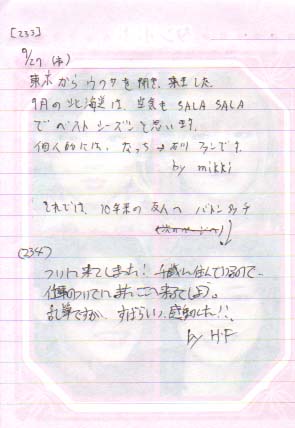 [233]
9/27 (木)
東京からウワサを聞き、来ました。
9月の北海道は、空気もSALA SALA
でベストシーズンと思います。
個人的には、なっち→石川ファンです。
by mikki
それでは、10年来の友人へ バトンタッチ
(234)
ついに来てしまった! 千歳に住んでいるので、
仕事のついでにまたここへ来るでしょう。
乱筆ですが、すばらしい、感動した!!
by H.F